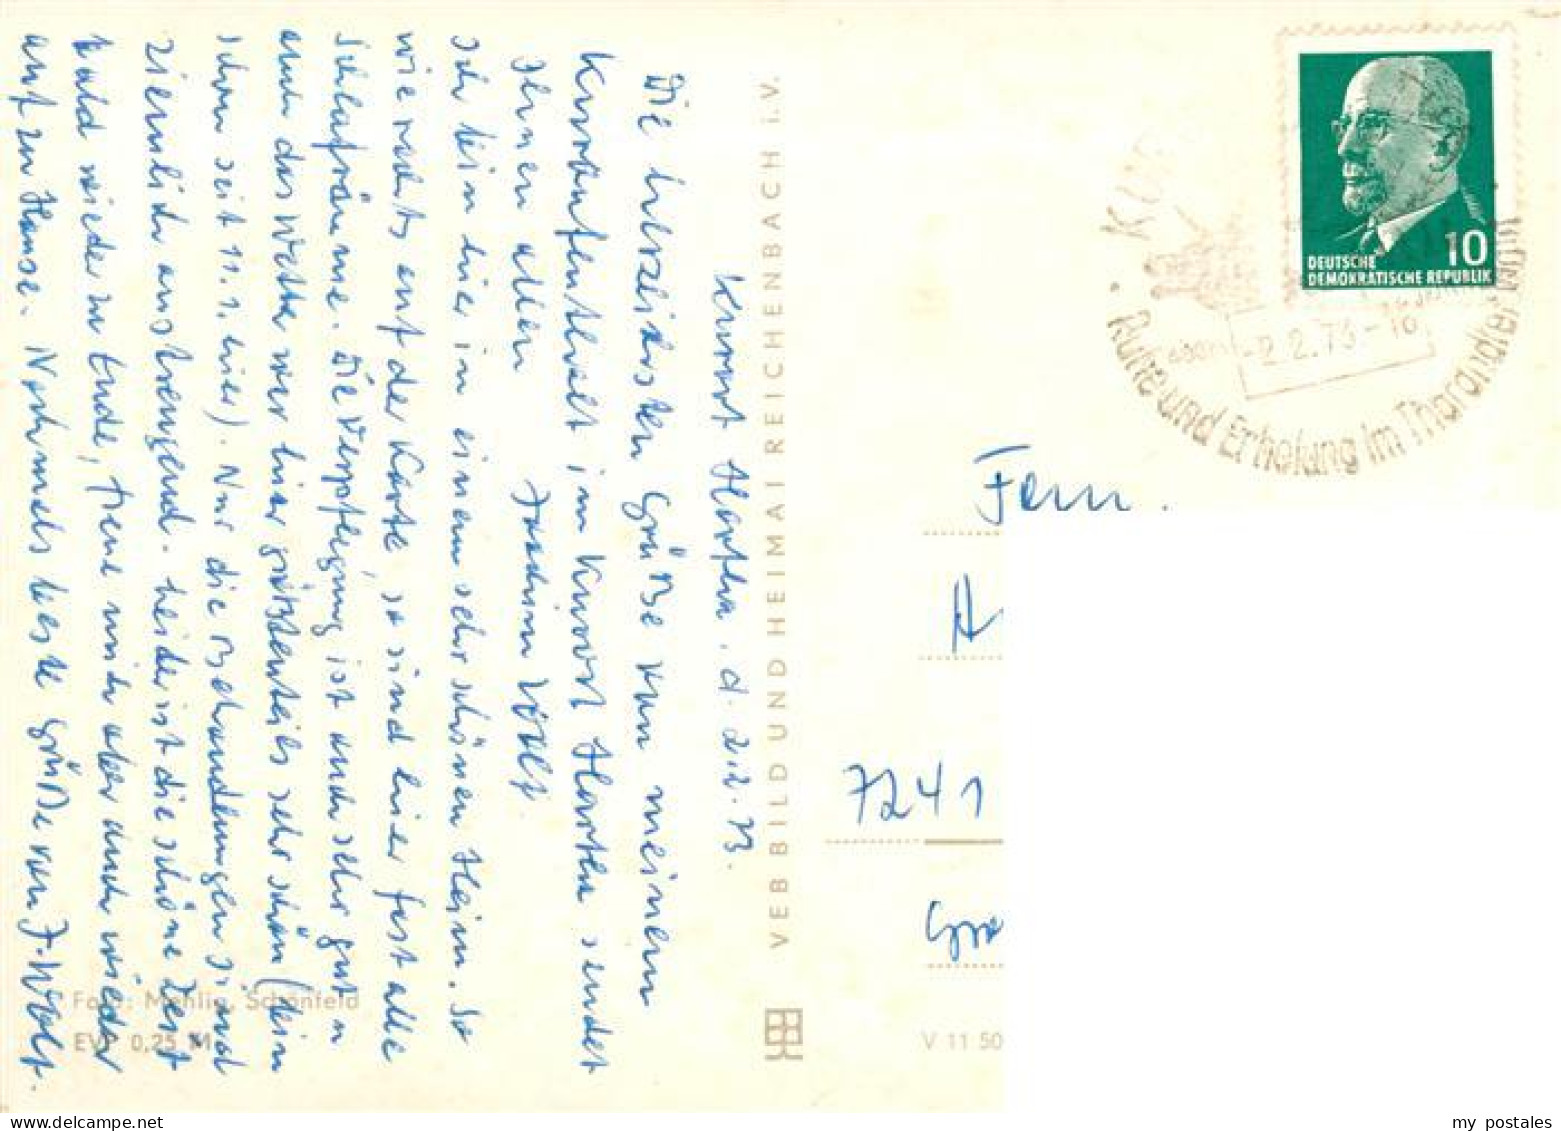 Kurort Hartha, d. 2.2.73.
Die herzlichsten Grüße von meinem
Kuraufenthalt im Kurort Hartha sendet
Ihnen allen Joachim Wolf.
Ich bin hier in einem sehr schönen Heim. So
wie rechts auf der Karte, so sind hier fast alle
Schlafräume. Die Verpflegung ist auch sehr gut u
auch das Wetter war hier größtenteils sehr schön (bin
schon seit 11.1. hier). Nur die Behandlungen sind
ziemlich anstrengend. Leider ist die schöne Zeit
bald wieder zu Ende, freue mich aber auch wieder
auf zu Hause. Nochmals beste Grüße von J. Wolf.
Foto: Mehlig, Schönfeld
EVP 0,25 M
VEB BILD UND HEIMAT REICHENBACH i. V.
V 11 50
DEUTSCHE 10
DEMOKRATISCHE REPUBLIK
-2.2.73-16
Ruhe und Erholung im Tharandter
Fam.
7241
my postales